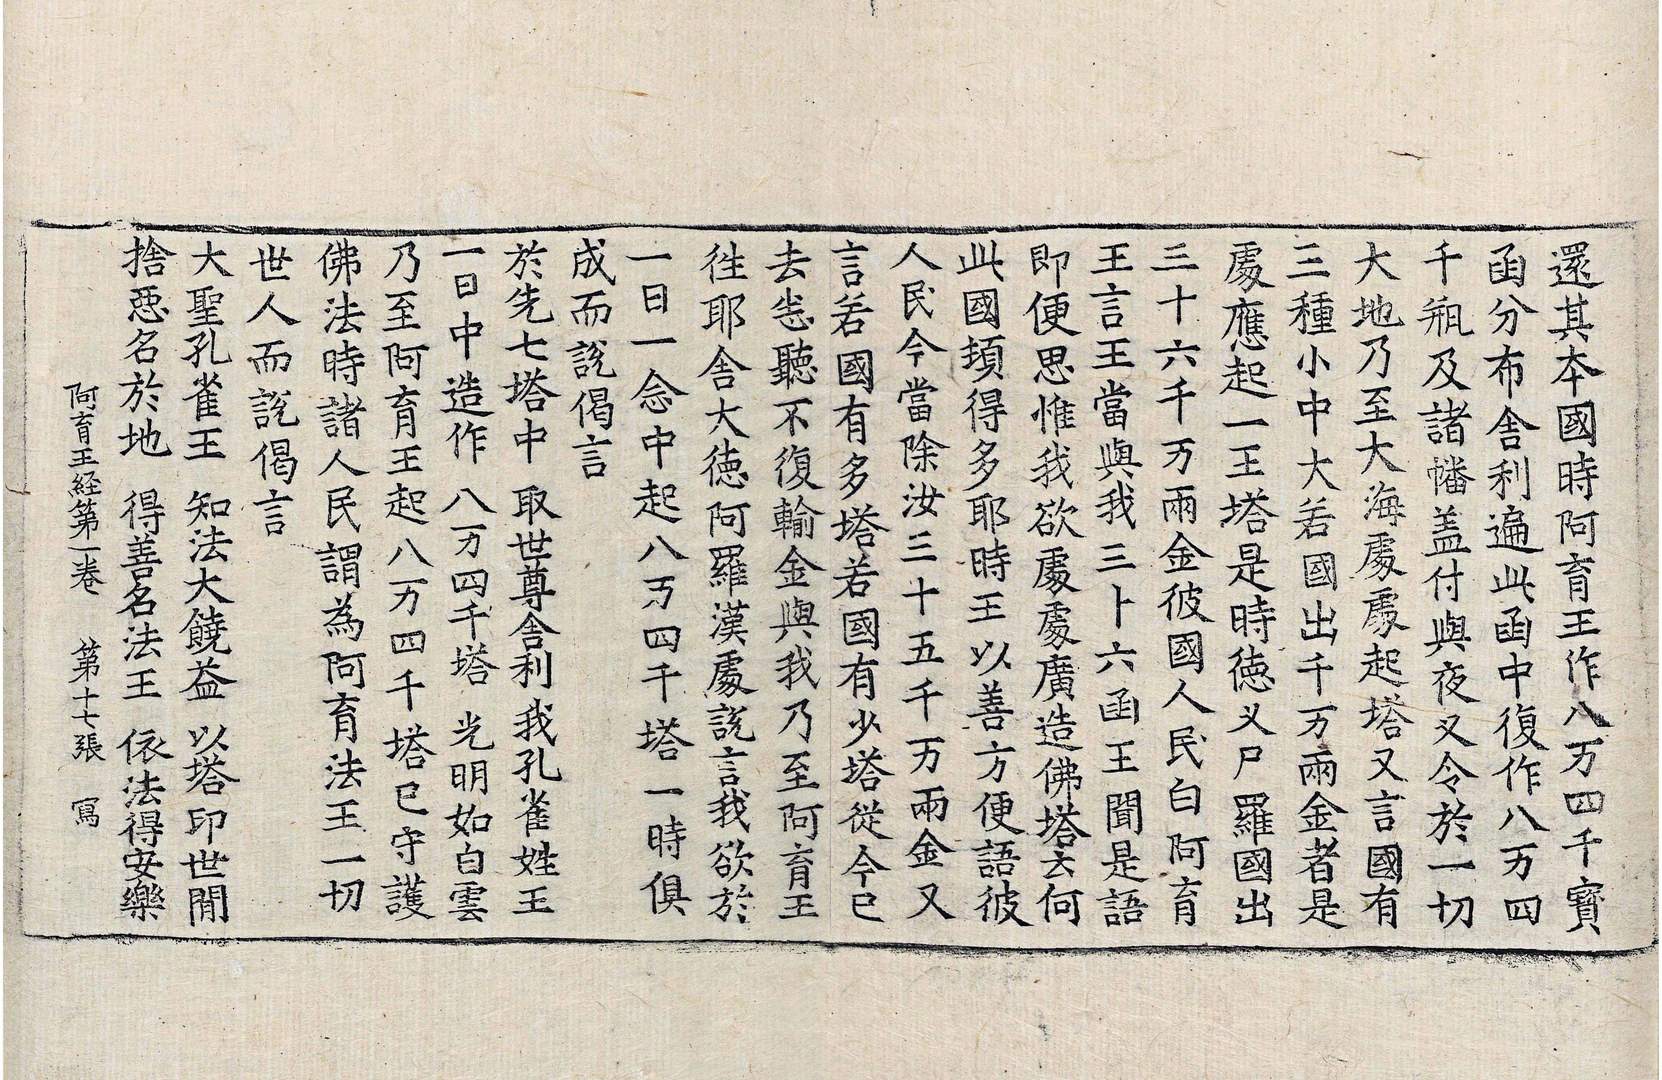 還其本國時阿育王作八万四千寳
函分布舎利遍此函中復作八万四
千瓶及諸幡盖付與夜叉令於一切
大地乃至大海處處起塔又言國有
三種小中大若國出千万兩金者是
處應起一王塔是時徳义尸羅國出
三十六千万兩金彼國人民白阿育
王言王當與我三十六函王聞是語
即便思惟我欲處處廣造佛塔云何
此國須得多耶時王以善方便語彼
人民今當除汝三十五千万兩金又
言若國有多塔若國有少塔從今已
去悉聽不復輸金與我乃至阿育王
徃耶舎大徳阿羅漢處說言我欲於
一日一念中起八万四千塔一時俱
成而說偈言
於先七塔中 取世尊舎利我孔雀姓王
一日中造作 八万四千塔 光明如白雲
乃至阿育王起八万四千塔已守護
佛法時諸人民謂為阿育法王一切
世人而說偈言
大聖孔雀王 知法大饒益 以塔印世間
捨惡名於地 得善名法王 依法得安樂
阿育王経第一巻 第十七張 寫